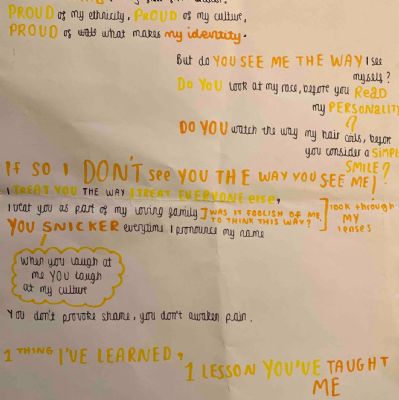 PROUD of my ethnicity, PROUD of my culture,
PROUD of what makes my identity.
But do YOU SEE ME THE WAY I see
myself?
Do YOU look at my race, before you READ
my PERSONALITY
?
DO YOU watch the way my hair coils, before
you consider a SIMPLE
SMILE?
IF SO I DON'T see YOU THE WAY YOU SEE ME!
I TREAT YOU THE WAY I TREAT EVERYONE ELSE,
I treat you as part of my loving family
WAS IT FOOLISH OF ME
TO THINK THIS WAY?
look through
MY
lenses
YOU SNICKER everytime I pronounce my name
When you laugh at
me YOU laugh
at my culture
You don't provoke shame, you don't awaken pain.
1 THING I'VE LEARNED,
1 LESSON YOU'VE TAUGHT
ME